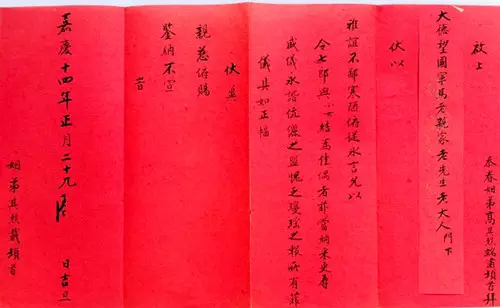 忝眷姻弟高其端肅頓首拜
啟上
大德望國學馬老親家老先生老大人門下
伏以
雅誼不鄙寒陋俯從永言兄以
令七郎與小女結為佳偶者菲當納采更辱
盛儀永諧伉儷之盟愧乏瓊瑤之報聊有菲
儀具如正幅
伏冀
親慈俯賜
鑒納不宣
旹
嘉慶十四年正月二十九 日吉旦
姻弟其載頓首